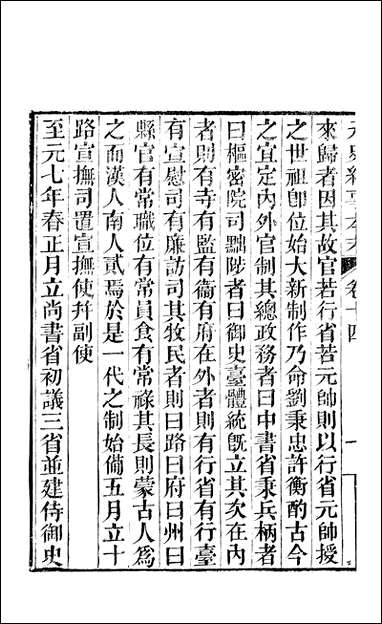 元史紀事本末 卷十四 一
來歸者因其故官若行省若元帥則以行省元帥授
之世祖卽位始大新制作乃命劉秉忠許衡酌古今
之宜定內外官制其總政務者曰中書省秉兵柄者
曰樞密院司黜陟者曰御史臺體統旣立其次在內
者則有寺有監有衞有府在外者則有行省有行臺
有宣慰司有廉訪司其牧民者則曰路曰府曰州曰
縣官有常職位有常員食有常祿其長則蒙古人爲
之而漢人南人貳焉於是一代之制始備五月立十
路宣撫司置宣撫使幷副使
至元七年春正月立尚書省初議三省並建侍御史